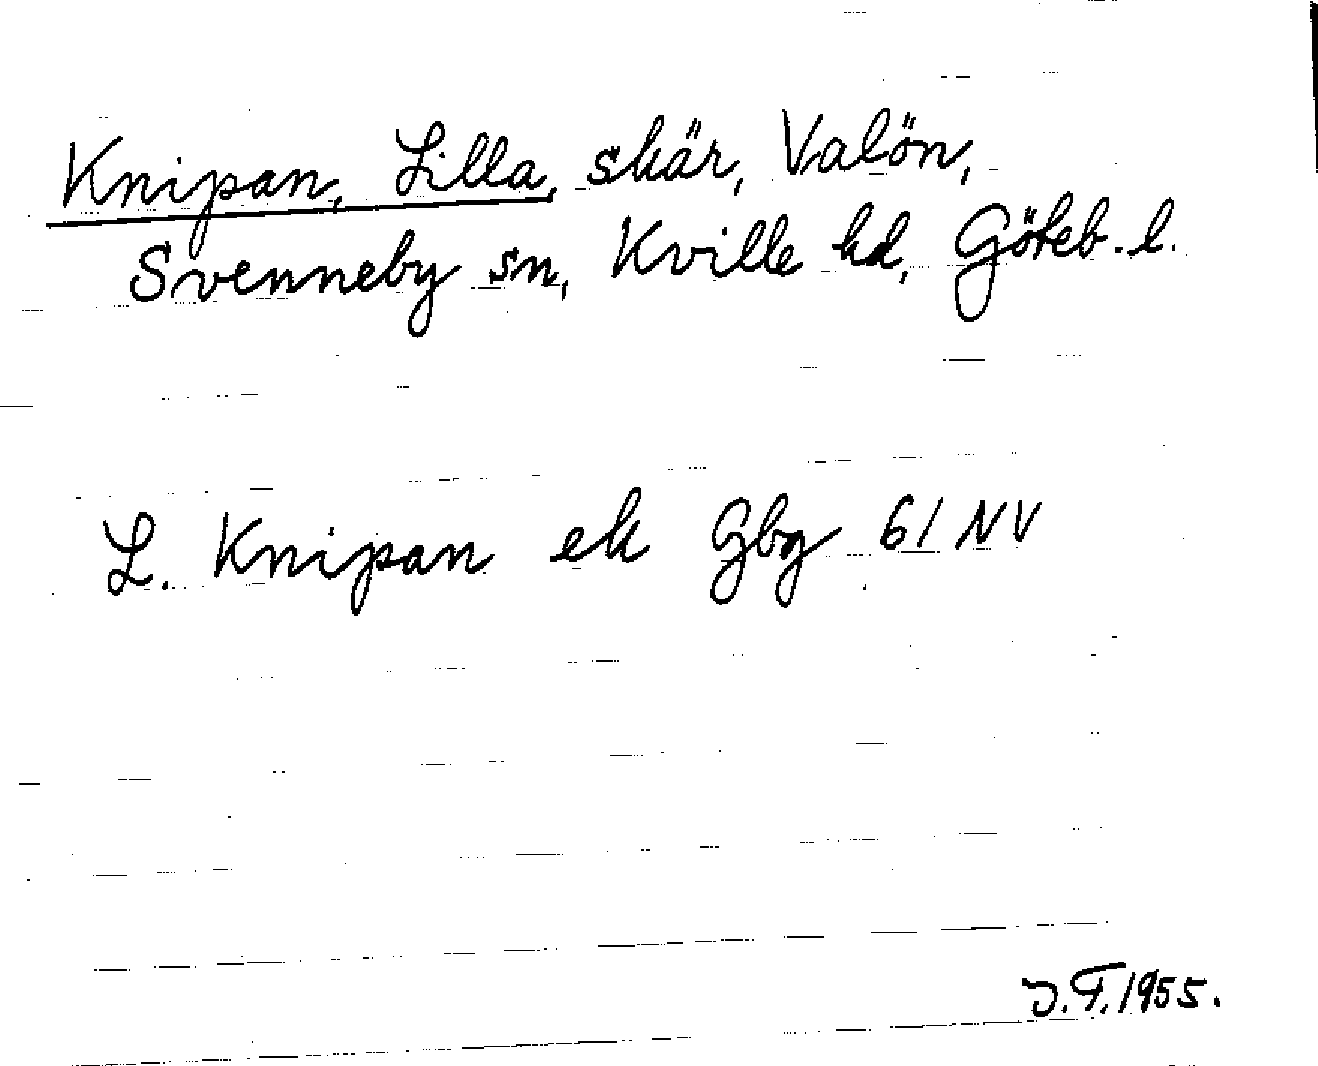 Knipan, Lilla, skär, Valön,
Svenneby sn, Kville hd, Göteb. l.
L. Knipan ek Gbg 61 NV
J.F. 1955.